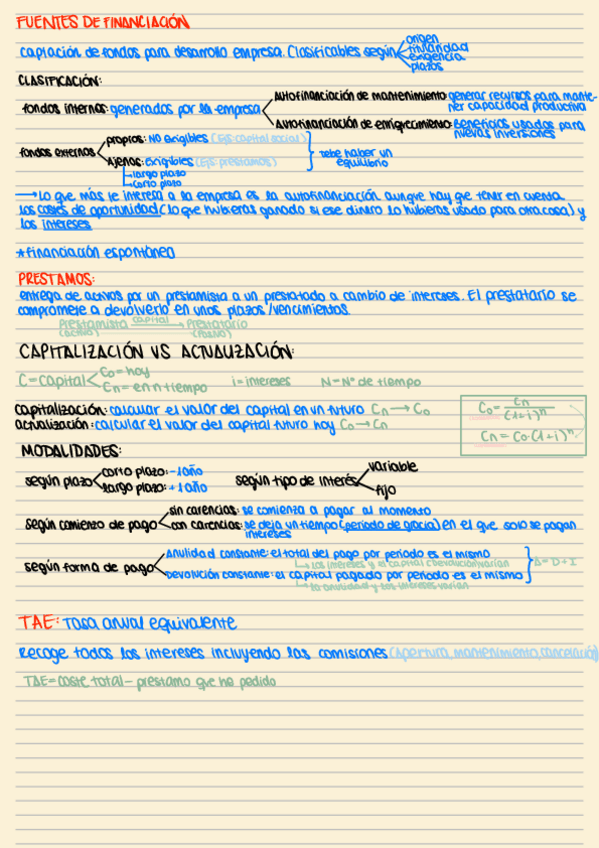 FUENTES DE FINANCIACIÓN
origen
captación de fondos para desarrollo empresa. Clasificables según titularidad
exigencia
plazos
CLASIFICACIÓN:
Autofinanciación de mantenimiento: generar recursos para mante-
ner capacidad productiva
fondos internos: generados por la empresa
Autofinanciación de enriquecimiento: Beneficios usados para
nuevas inversiones
propios: NO exigibles (Ejs: capital social)
fondos externos
debe haber un
equilibrio
Ajenos: Exigibles (Ejs: prestamos)
largo plazo
corto plazo
→ Lo que más le interesa a la empresa es la autofinanciación aunque hay que tener en cuenta
los costes de oportunidad (lo que hubieras ganado si ese dinero lo hubieras usado para otra cosa) y
los intereses
*financiación espontánea
PRESTAMOS:
entrega de activos por un prestamista a un prestatado a cambio de intereses. El prestatario se
compromete a devolverlo en unos plazos/vencimientos.
Prestamista capital → Prestatario
(activo) (Pasivo)
CAPITALIZACIÓN VS ACTUALIZACIÓN:
C=capital Co=hoy
Cn=en n tiempo i=intereses N=Nº de tiempo
capitalización: calcular el valor del capital en un futuro Cn → Co
actualización: calcular el valor del capital futuro hoy Co → Cn
Co = Cn / (1+i)ⁿ
Cn = Co·(1+i)ⁿ
MODALIDADES:
según plazo corto plazo: -1 año
largo plazo: +1 año
según tipo de interés variable
fijo
según comienzo de pago sin carencias: se comienza a pagar al momento
con carencias: se deja un tiempo (periodo de gracia) en el que solo se pagan
intereses
según forma de pago Anulidad constante: el total del pago por periodo es el mismo
→ los intereses y el capital (devolución) varían
Devolución constante: el capital pagado por periodo es el mismo
→ la anulidad y los intereses varían
A = D + I
TAE: Tasa anual equivalente
Recoge todos los intereses incluyendo las comisiones (Apertura, mantenimiento, cancelación)
TAE = coste total - prestamo que he pedido